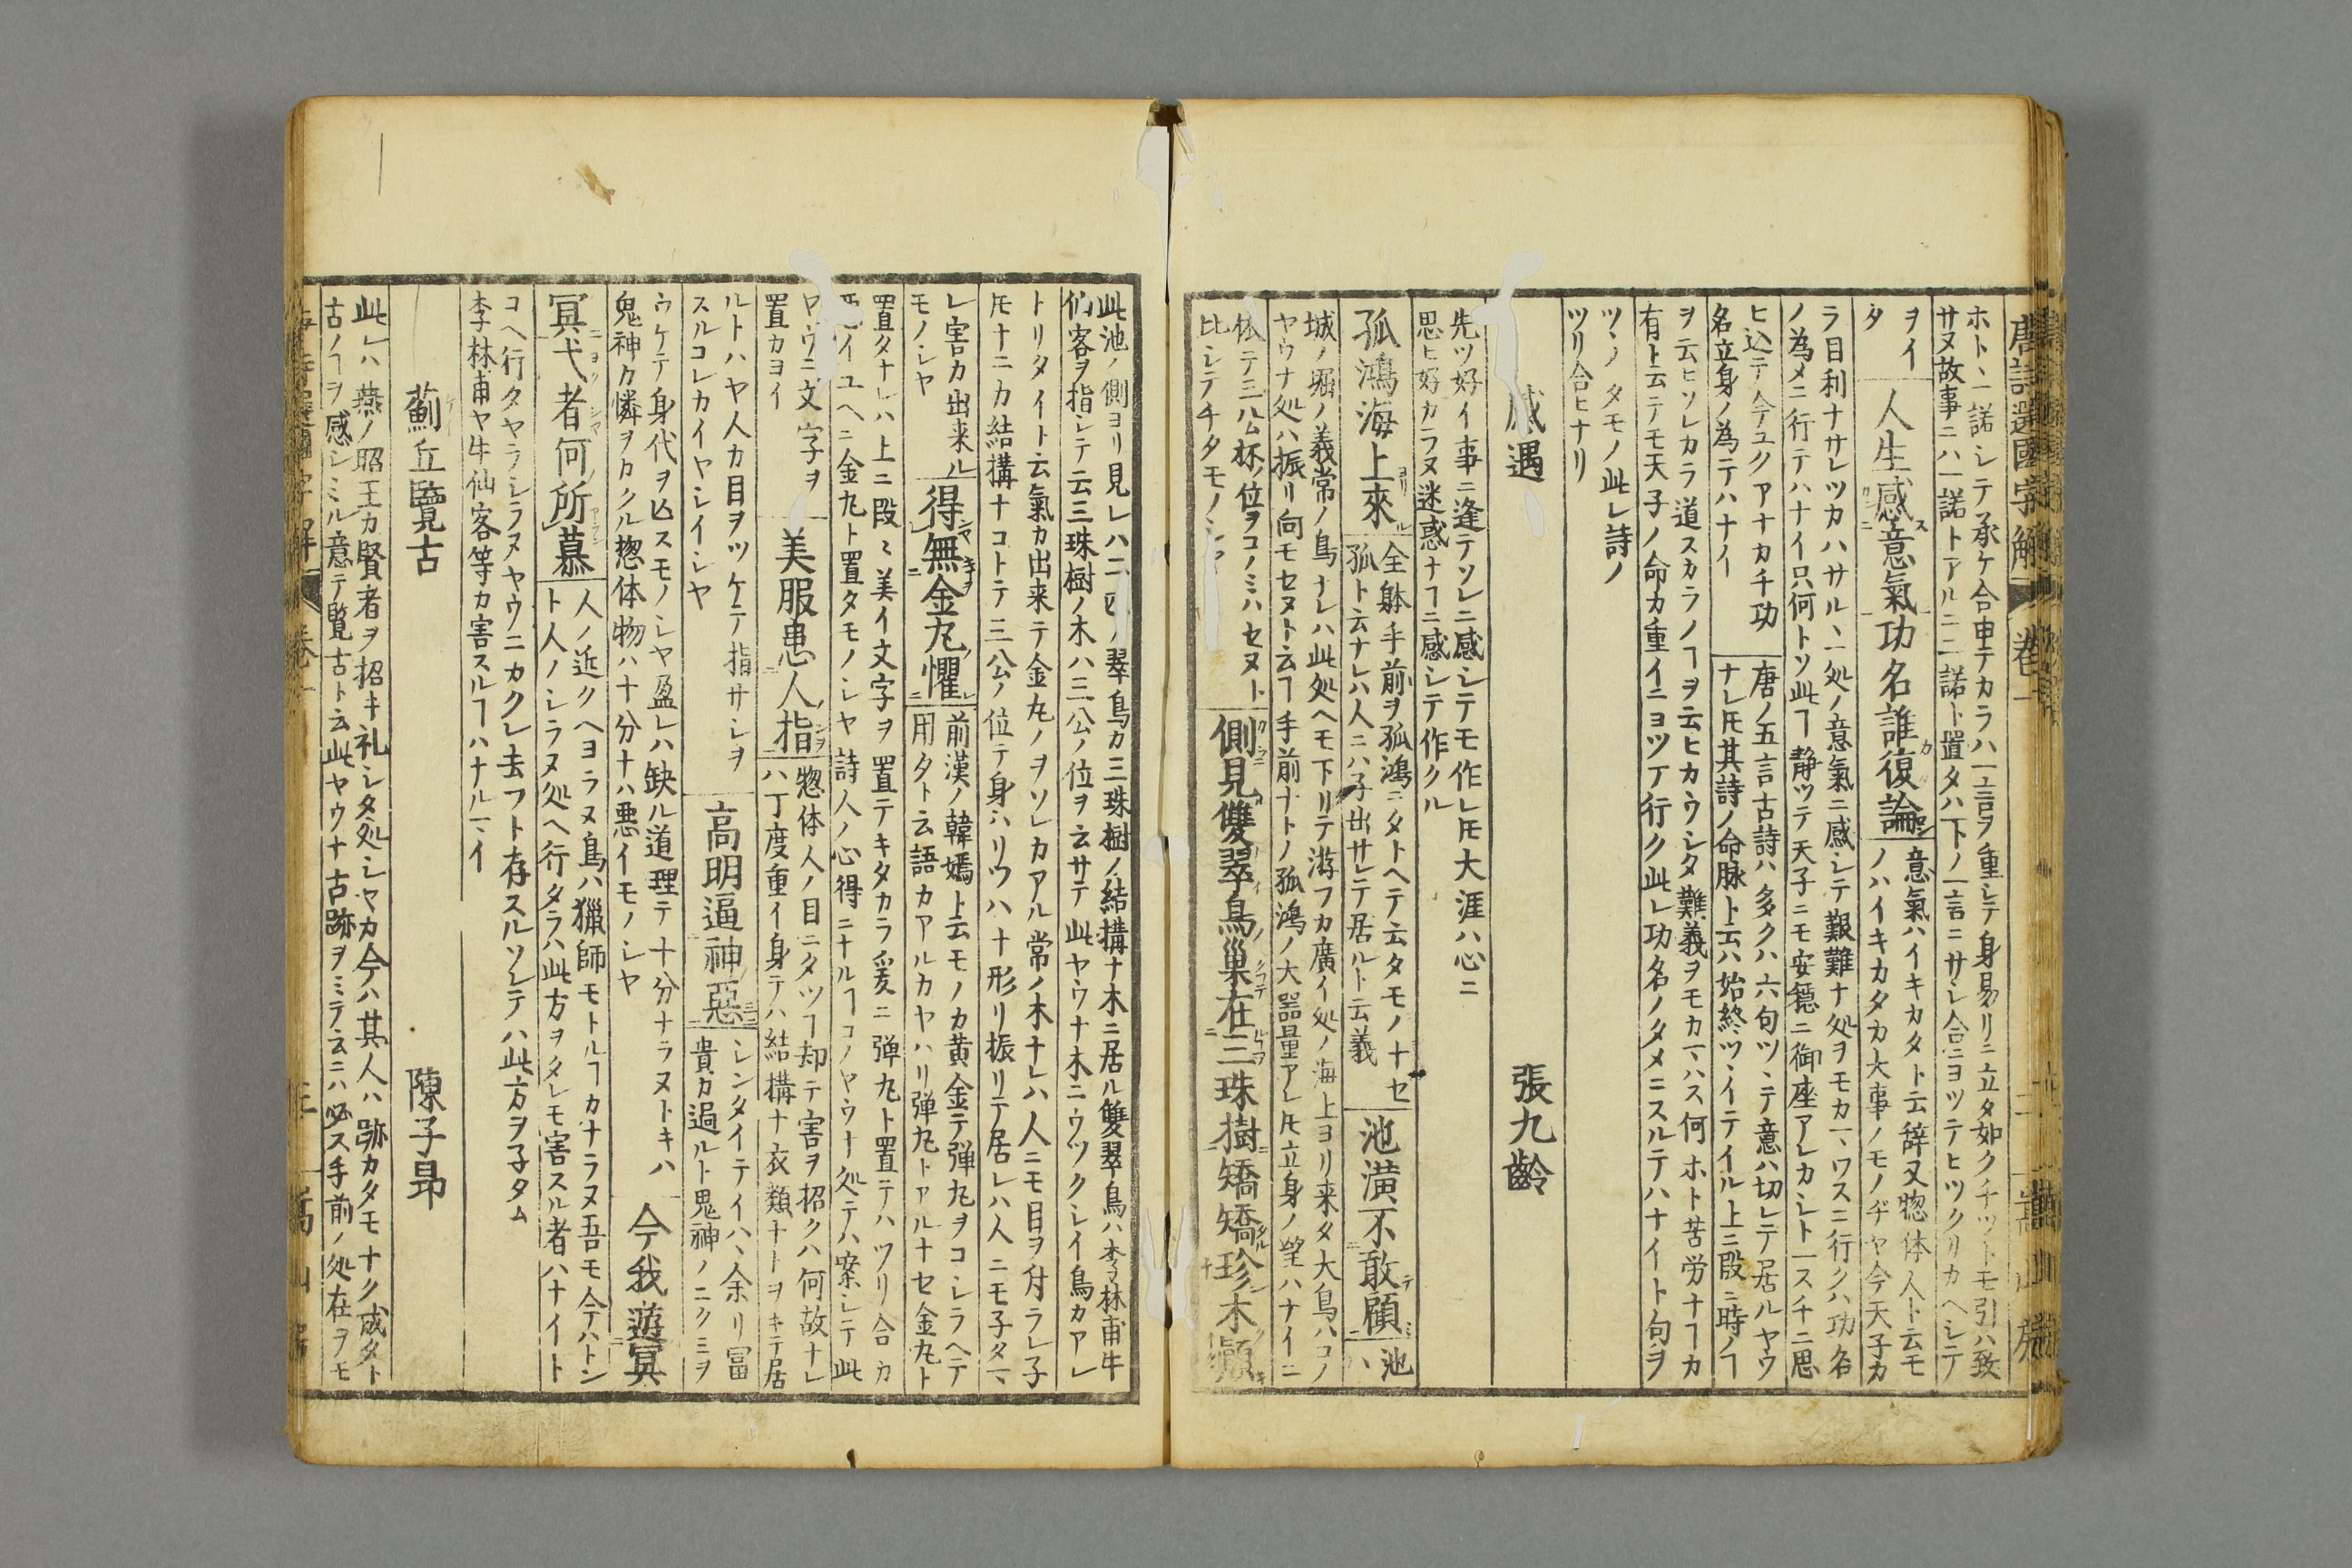 唐詩選國字解 卷一
ホト一諾シテ承ケ合申テカラハ一言ヲ重シテ身易リニ立タ如クチツトモ引ハ致
サヌ故事ニハ一諾トアルニ二諾ト置タハ下ノ一言ニサシ合ニヨツテヒツクリカヘシテ
ヲイ
タ
人生感意氣功名誰復論
意氣ハイキカタト云辞又惣体人ト云モ
ノハイキカタカ大事ノモノヂヤ今天子カ
ラ目利ナサレツカハサル、一処ノ意氣ニ感シテ艱難ナ処ヲモカマワスニ行クハ功名
ノ為メニ行テハナイ只何トソ此ヿ静ツテ天子ニモ安穏ニ御座アレカシト一スチニ思
ヒ込テ今ユクアナカチ功
名立身ノ為テハナイ
唐ノ五言古詩ハ多クハ六句ツヽテ意ハ切レテ居ルヤウ
ナレ𪜈其詩ノ命脉ト云ハ始終ツヽイテイル上ニ段ニ時ノヿ
ヲ云ヒソレカラ道スカラノヿヲ云ヒカウシタ難義ヲモカマハス何ホト苦労ナヿカ
有ト云テモ天子ノ命カ重イニヨツテ行ク此レ功名ノタメニスルテハナイト句ヲ
ツヽノタモノ此レ詩ノ
ツリ合ヒナリ
感遇 張九齡
先ツ好イ事ニ逢テソレニ感シテモ作レ𪜈大涯ハ心ニ
思ヒ好カラヌ迷惑ナヿニ感シテ作クル
孤鴻海上來
全躰手前ヲ孤鴻ニタトヘテ云タモノナセ
孤ト云ナレハ人ニハ子出サレテ居ルト云義
池潢不敢顧
池
ハ
城ノ堀ノ義常ノ鳥ナレハ此処ヘモ下リテ游フカ廣イ処ノ海上ヨリ来タ大鳥ハコノ
ヤウナ処ハ振リ向モセヌト云ヿ手前ナトノ孤鴻ノ大器量アレ𪜈立身ノ望ハナイニ
依テ三公杯ノ位ヲコノミハセヌト
比シテチタモノシヤ
側見雙翠鳥巢在三珠樹矯矯珍木巔
此池ノ側ヨリ見レハ二匹ノ翠鳥カ三珠樹ノ結構ナ木ニ居ル雙翠鳥ハ李林甫牛
仙客ヲ指シテ云三珠樹ノ木ハ三公ノ位ヲ云サテ此ヤウナ木ニウツクシイ鳥カアレ
トリタイト云氣カ出来テ金丸ノヲソレカアル常ノ木ナレハ人ニモ目ヲ付ラレ子
𪜈ナニカ結構ナコトテ三公ノ位テ身ハリワハナ形リ振リテ居レハ人ニモ子タマ
レ害カ出来ル
モノシヤ
得無金丸懼
前漢ノ韓嫣ト云モノカ黄金テ弾丸ヲコシラヘテ
用タト云語カアルカヤハリ弾丸トアルナセ金丸ト
置タナレハ上ニ段〻美イ文字ヲ置テキタカラ爰ニ弾丸ト置テハツリ合カ
悪イユヘニ金丸ト置タモノシヤ詩人ノ心得ニナルヿコノヤウナ処テハ案シテ此
ヤウニ文字ヲ
置カヨイ
美服患人指
惣体人ノ目ニタツヿ却テ害ヲ招クハ何故ナレ
ハ丁度重イ身テハ結構ナ衣類ナトヲキテ居
ルトハヤ人カ目ヲツケテ指サシヲ
スルコレカイヤシイシヤ
高明逼神惡
シンタイテイハヽ余リ冨
貴カ過ルト鬼神ノニクミヲ
ウケテ身代ヲ亾スモノシヤ盈レハ缺ル道理テ十分ナラヌトキハ
鬼神カ憐ヲカクル惣体物ハ十分ナハ悪イモノシヤ
今我遊冥
冥弋者何所慕
人ノ近クヘヨラヌ鳥ハ獵師モトルヿカナラヌ吾モ今ハトン
ト人ノシラヌ処ヘ行タラハ此方ヲタレモ害スル者ハナイト
コヘ行タヤラシラヌヤウニカクレ去フト存スルソレテハ此方ヲ子タム
李林甫ヤ牛仙客等カ害スルヿハナルマイ
薊丘覽古 陳子昻
此レハ燕ノ昭王カ賢者ヲ招キ礼シタ処シヤカ今ハ其人ハ跡カタモナク成タト
古ノヿヲ感シミル意テ覽古ト云此ヤウナ古跡ヲミテ云ニハ必ス手前ノ処在ヲモ